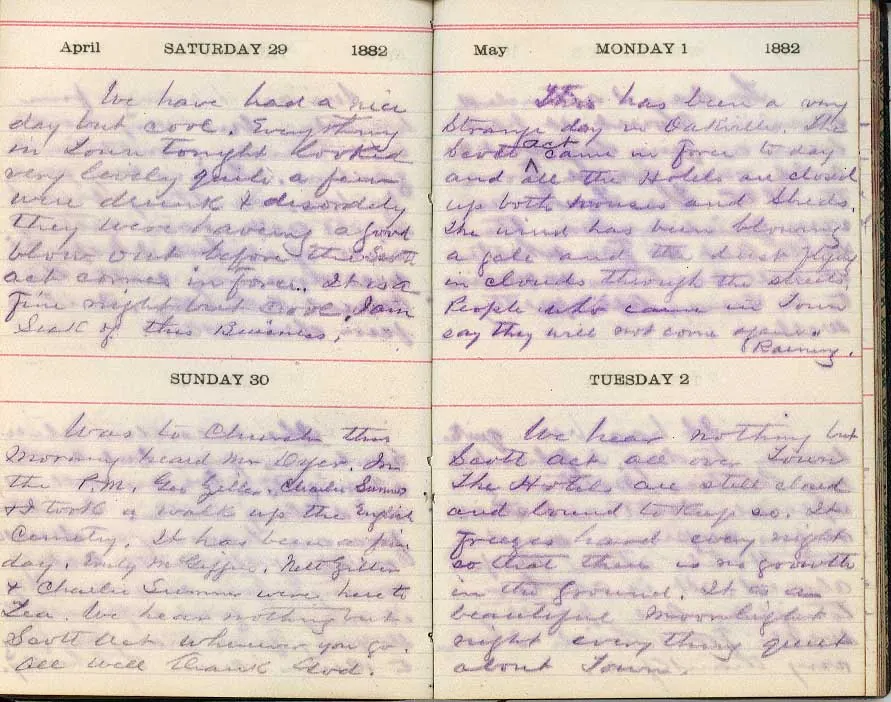 April SATURDAY 29 1882
We have had a nice
day but cool. Everything
in Town tonight looked
very lovely quite a few
were drunk & disordely
they were having a good
blow out before the Scott
act comes in force. It is a
fine night but cool. I am
Sick of this Buisiness.
SUNDAY 30
Was to Church this
Morning heard Mr Dyer. In
the P.M. Geo Charlie Sumner
& I took a walk up the English
Cemetry. It has been a fine
day. Emily Nett
& Charlie Sumner were here to
Tea. We hear nothing but
Scott Act wherever you go.
All well Thank God.
May MONDAY 1 1882
This has been a very
Strange day in Oakville. The
Scott act came in force to day
and all the Hotels are closed
up both houses and Sheds.
The wind has been blowing
a gale and the dust flying
in clouds through the streets.
People who came in Town
say they will not come again.
Raining.
TUESDAY 2
We hear nothing but
Scott act all over Town
The Hotels are still closed
and bound to keep so. It
freezes hard every night
so that there is no growth
in the ground. It is a
beautiful Moonlight
night everything quiet
about Town.